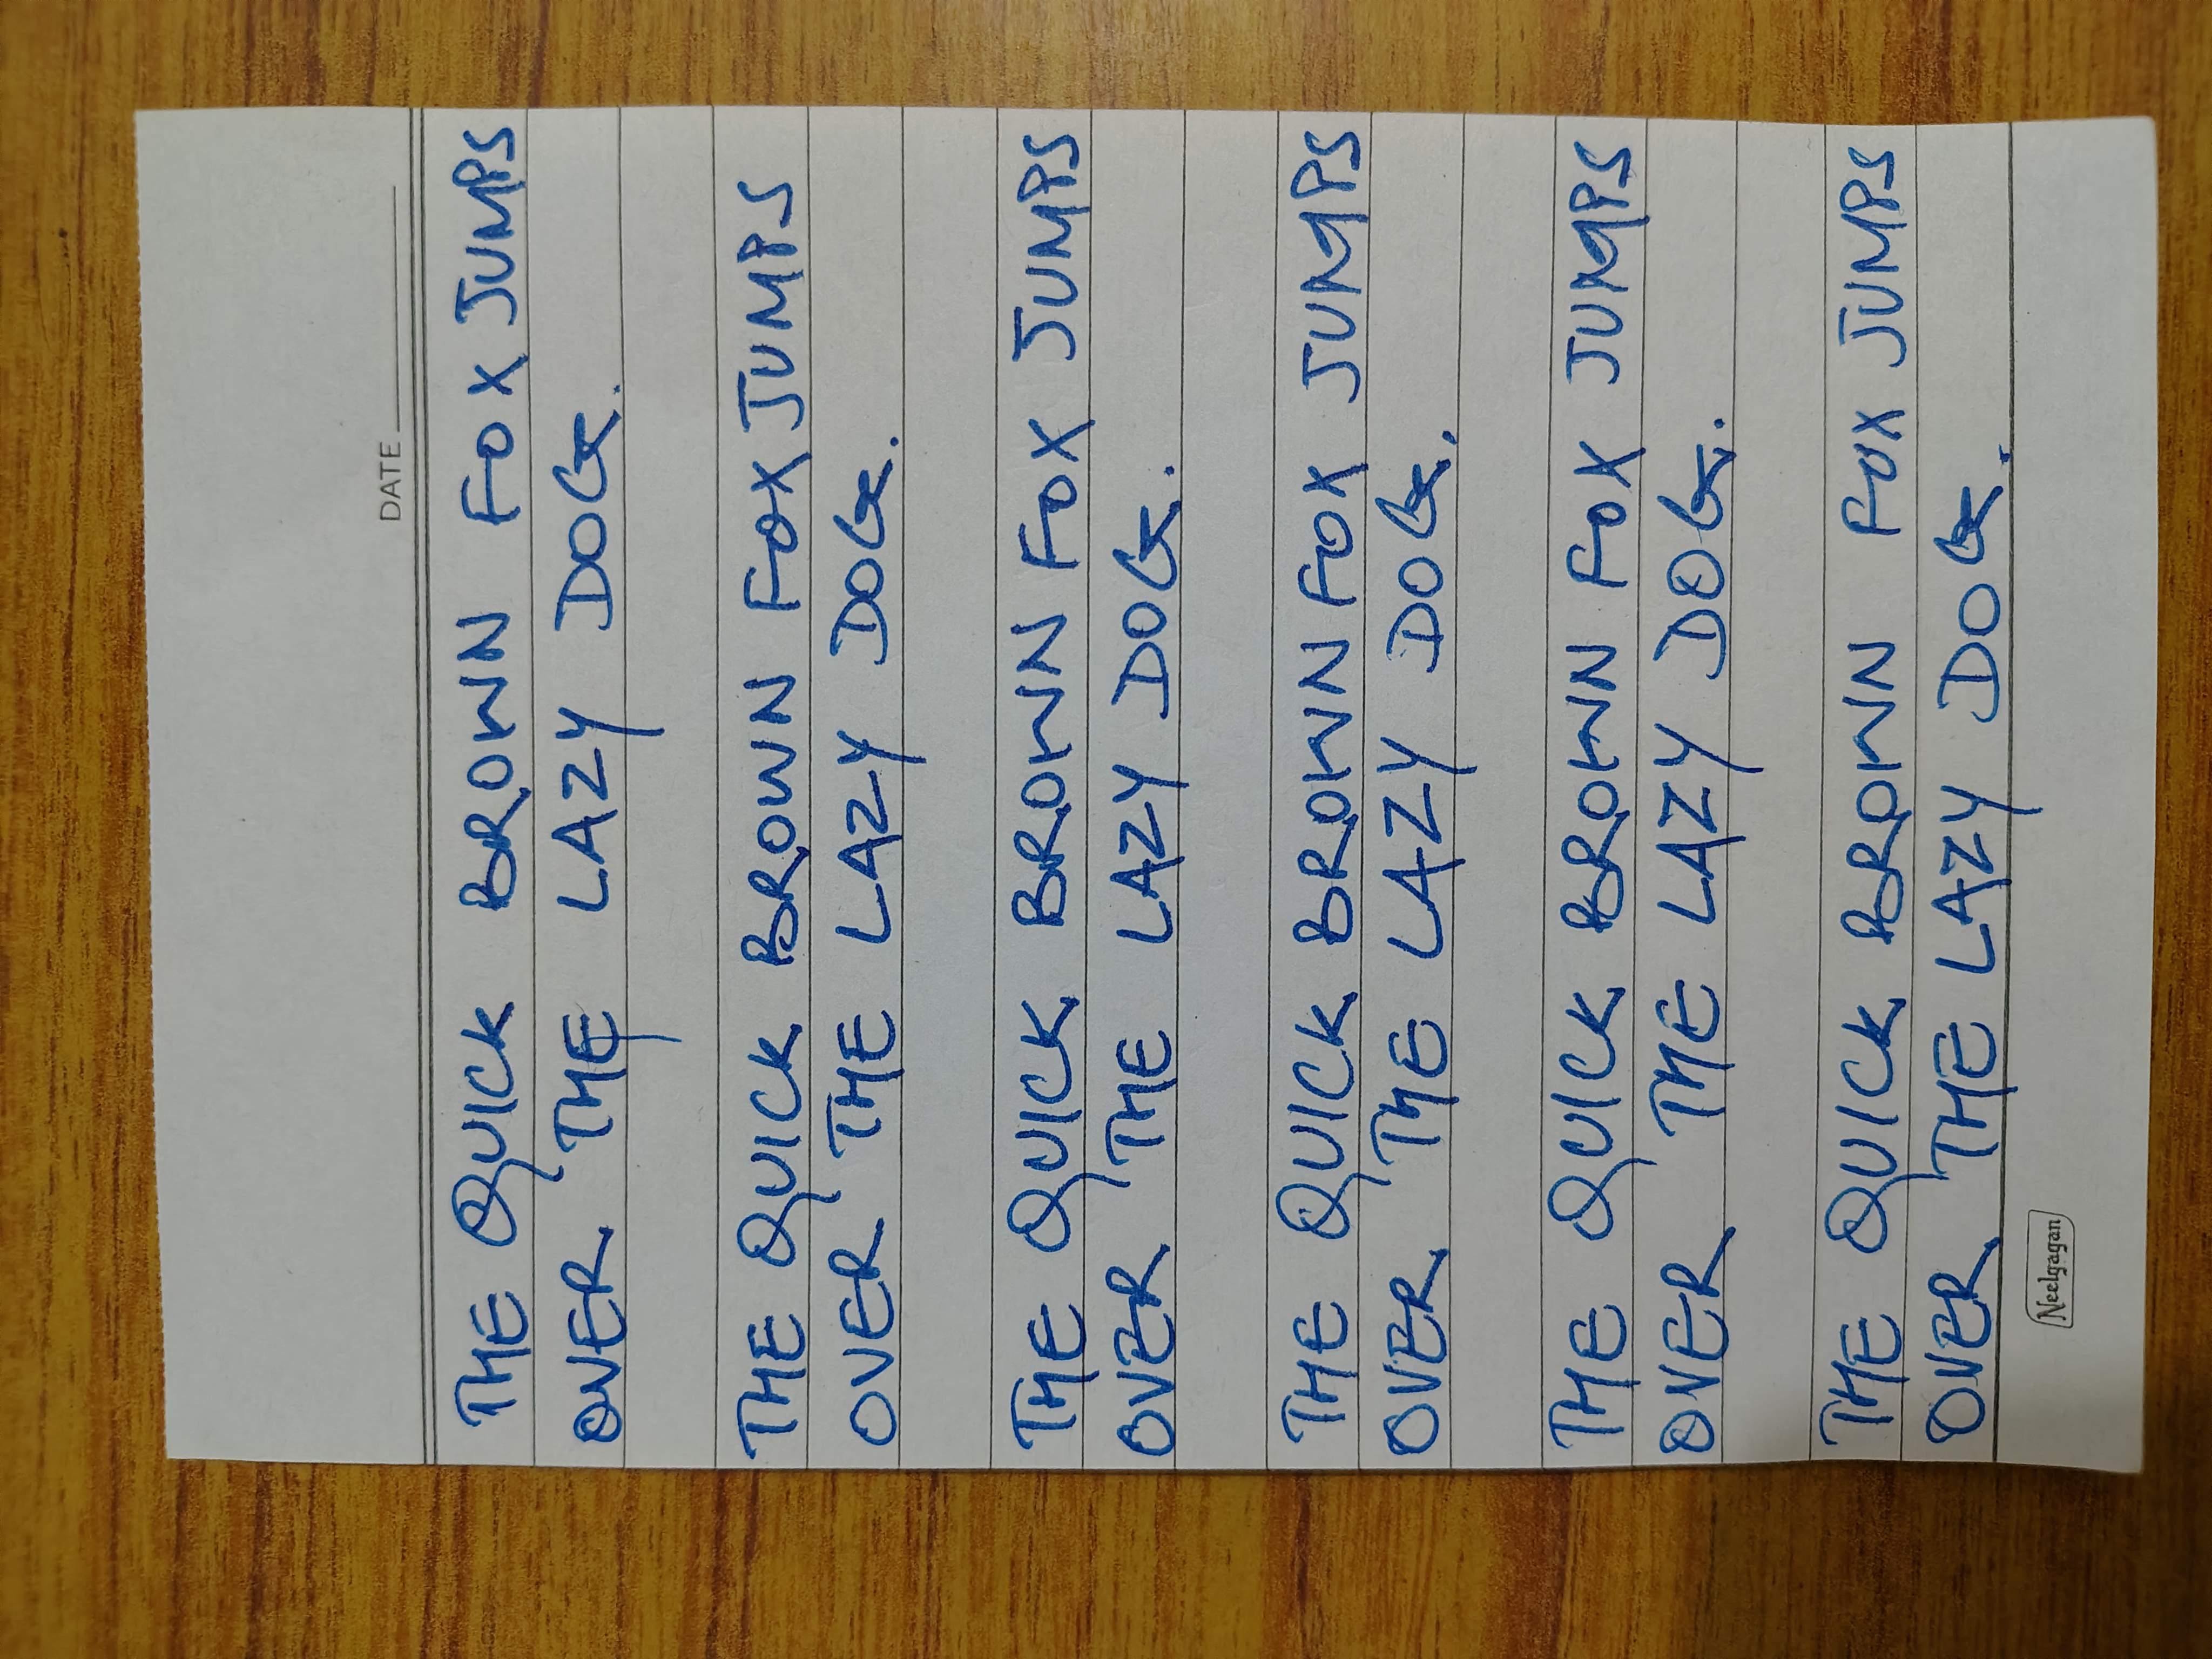 DATE
THE QUICK BROWN FOX JUMPS
OVER THE LAZY DOG.
THE QUICK BROWN FOX JUMPS
OVER THE LAZY DOG.
THE QUICK BROWN FOX JUMPS
OVER THE LAZY DOG.
THE QUICK BROWN FOX JUMPS
OVER THE LAZY DOG.
THE QUICK BROWN FOX JUMPS
OVER THE LAZY DOG.
THE QUICK BROWN FOX JUMPS
OVER THE LAZY DOG.
Neelgagan